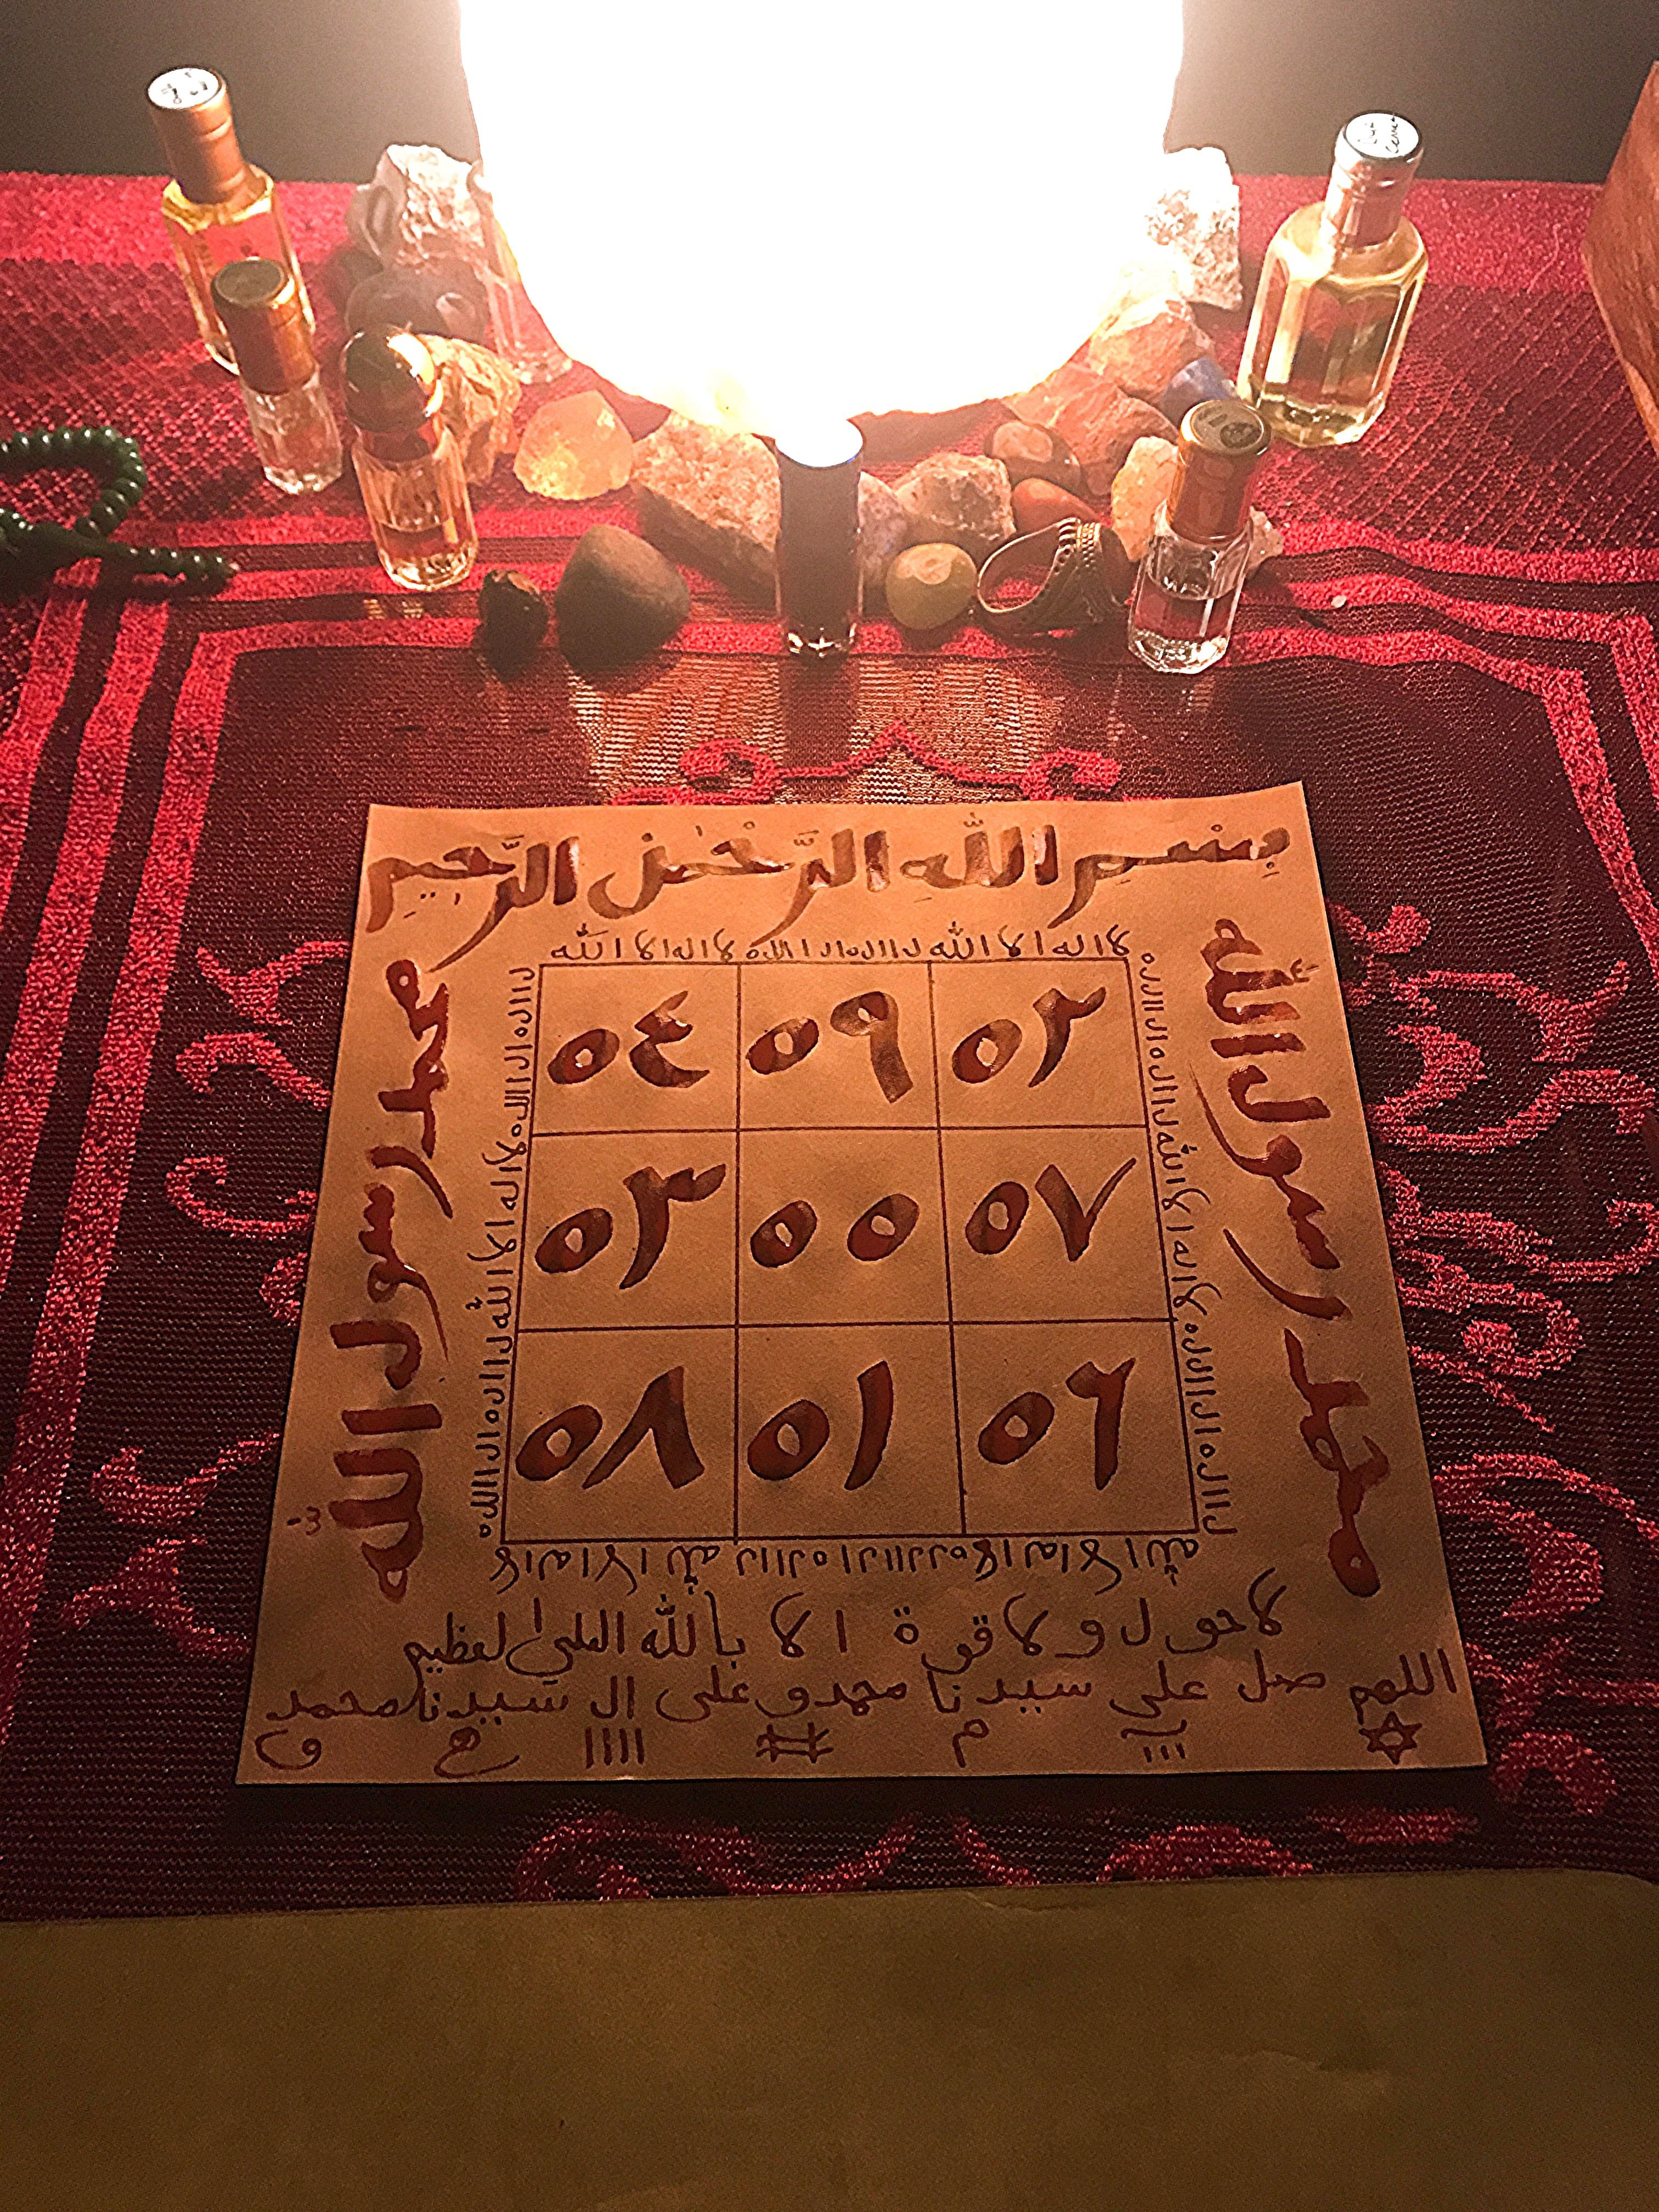 بِسْمِ اللّٰهِ الرَّحْمٰنِ الرَّحِيمِ
لا اله الا الله ل اال ه ال ا الله لا اله الا الله
محمد رسول الله
محمد رسول الله
٥٤ ٥٩ ٥٢
٥٣ ٥٥ ٥٧
٥٨ ٥١ ٥٦
لا اله الا الله
لا اله الا الله
لا اله الا الله
لا حول ولا قوة الا بالله العلي لعظيم
اللهم صل على سيدنا محمد وعلى ال سيدنا محمد
✡ م # ||||